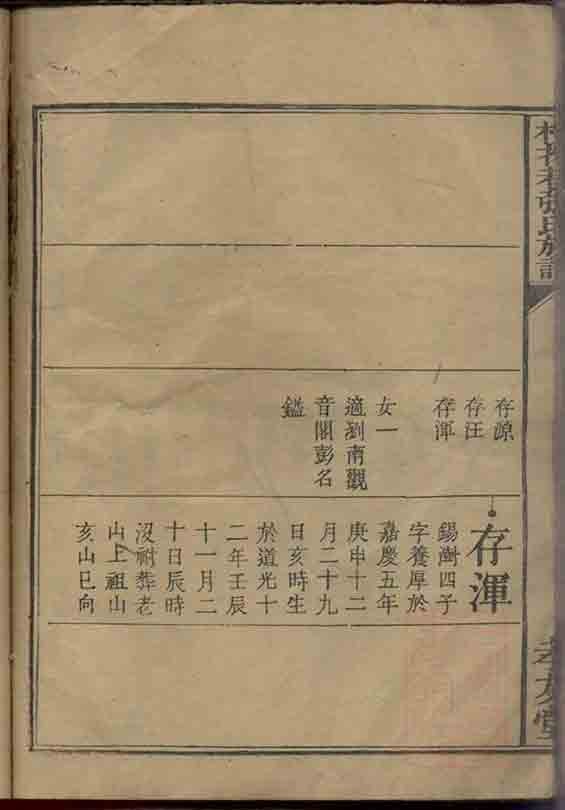 存源
存汪
存渾
女一
適劉南觀
音閣彭名
鎰
存渾
錫澍四子
字養厚於
嘉慶五年
庚申十二
月二十九
日亥時生
於道光十
二年壬辰
十一月二
十日辰時
沒祔葬老
山上祖山
亥山巳向
孝友堂